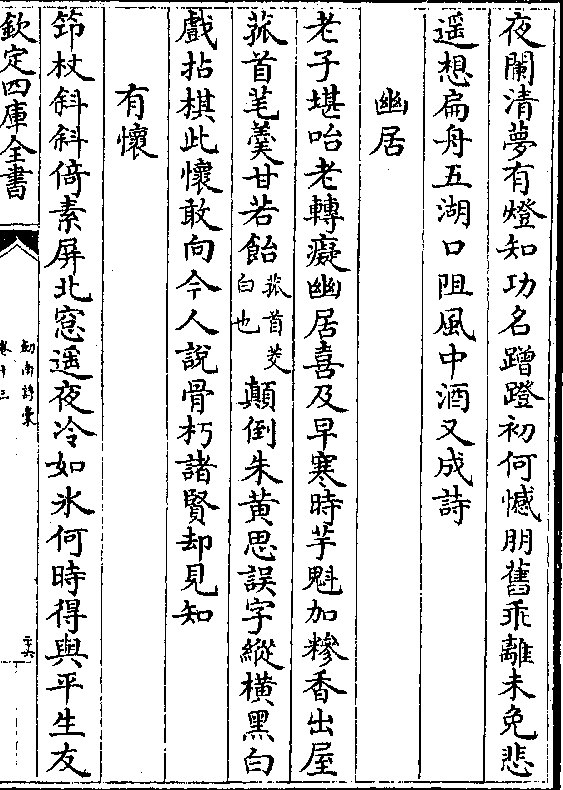 夜闌清夢有燈知功名蹭蹬初何憾朋舊乖離未免悲
遥想扁舟五湖口阻風中酒又成詩
幽居
老子堪咍老轉癡幽居喜及早寒時芋魁加糝香出屋
菰首芼羮甘若飴菰首茭白也顛倒朱黄思誤字縱橫黒白
戲拈棋此懷敢向今人說骨朽諸賢却見知
有懷
笻杖斜斜倚素屏北窓遥夜冷如氷何時得與平生友
欽定四庫全書
劒南詩稾
卷十三
二十六